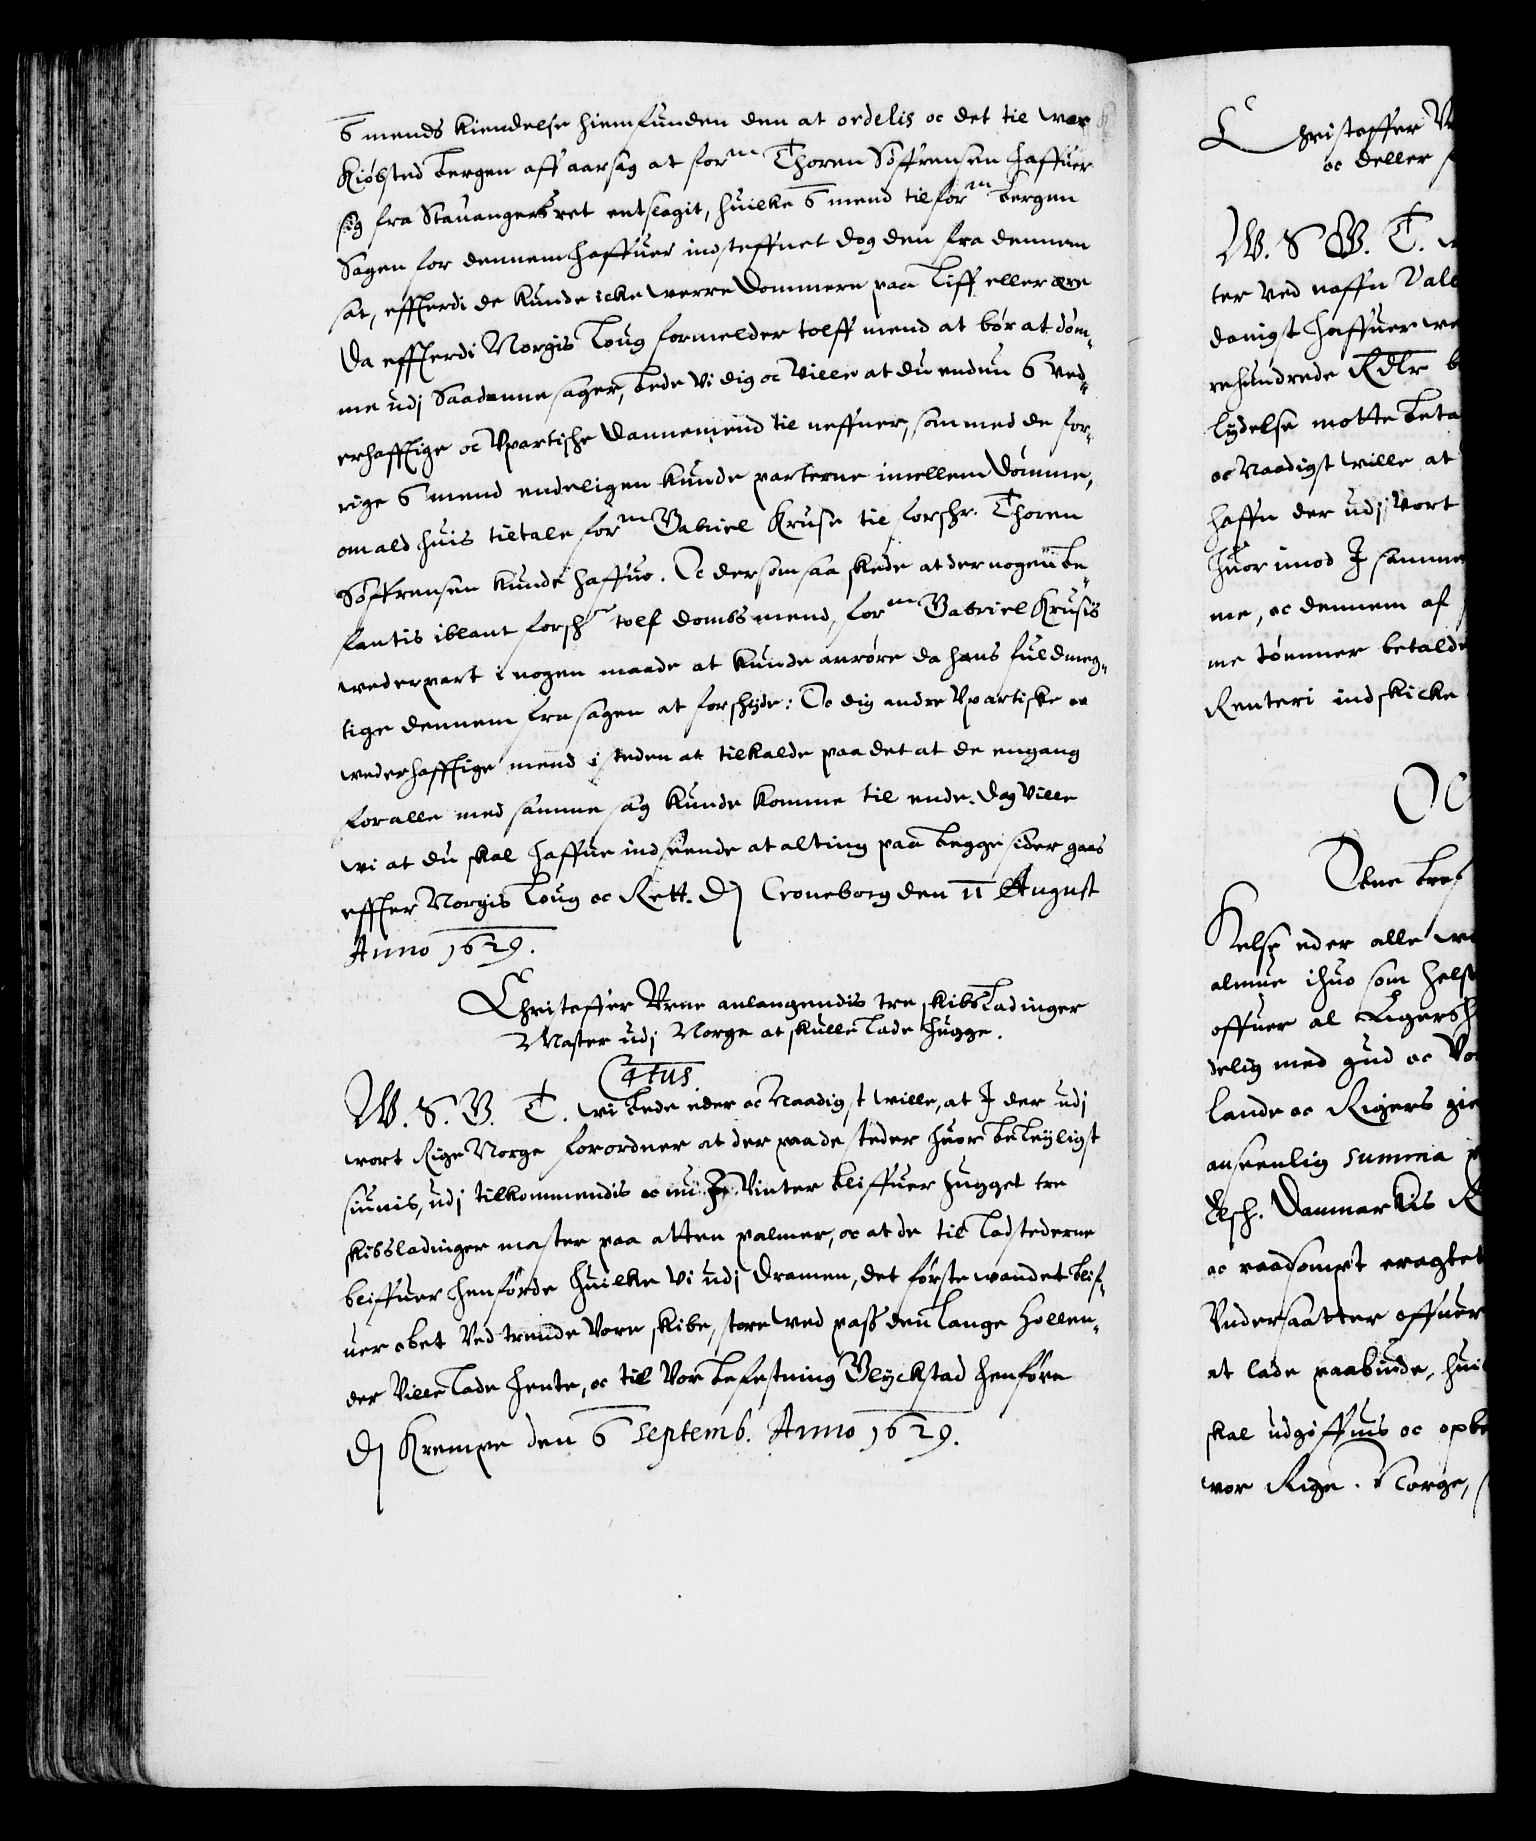 6 mends kiendelse hiemfunden den at ordelis oc det til wor
Kiøbsted Bergen aff aarsag at forne Thoren Søffrensen haffuer
sig fra Stauangers ret entslagit, huilke 6 mend til forne Bergen
Sagen for dennem haffuer indsteffnet dog den fra dennem
sat, efftterdi de kunde icke werre Dommere paa Liff eller ære
Da effterdi Norgis Loug formelder tolff mend at bør at døm-
me udj Saadanne sager, bede Vi dig oc Ville at du endnu 6 ved-
erhafftige oc Vpartische Dannemend til neffner, som med de for-
rige 6 mend endeligen kunde parterne imellem Dømme,
om ald huis tiltale forne Gabriel Kruse til forschr. Thoren
Søffrensen kunde haffue. Oc dersom saa skede at der nogen be-
fantis iblant forschr tolf dombsmend, forne Gabriel Krusis
wederpart i nogen maade at kunde anrøre da hans fuldmeg-
tige dennem fra sagen at forschyde: Oc dig andre Vpartiske oc
wederhafftige mend i steden at tilkalde paa det at de engang
for alle med samme sag kunde komme til ende. Dog Ville
wi at du skal haffue indseende at alting paa begge sider gaas
effter Norgis Loug oc Rett. Dj Croneborg den 11 August
Anno 1629.
Christoffer Vrne anlangendis tre skibs Ladinger
Master udj Norge at skulle lade hugge.
C 4tus.
W. S. G. T. wi bede eder oc Naadigst wille, at I der udj
wort Rige Norge forordner at der paa de steder huor beleyligst
siunis, udj tilkommendis oc nu Vinter bliffuer hugget tre
skibsladinger master paa atten palmer, oc at de til Ladstederne
bliffuer henførde huilke Vi udj Dramen, det første wandet blif-
uer obet Ved trende Vore skibe, store wed pass den lange Hollen-
der Ville lade hente, oc til Vor befestning Glyckstad henføre
Dj Krempe den 6 Septemb. Anno 1629.
Christoffer Vr
oc deller
W. S. G. T. w
ter Ved naffn Val
danigst haffuer we
rehundrede Rdlr b
lydelse motte beta
oc Naadigst wille at
haffn der udj Vort
huor imod I samme
me, oc dennem af
me tønner betalde
Renteri indskicke
Oc
Obne bref
Kelse eder alle we
almue ihuo som helst
offuer al Agersh
delig med gud oc Vo
lande oc Rigers gie
anseenlig summa p
Elsch. Danmarkis R
oc raadsompt eragtet
Vndersaatter offuer
at lade paabiude, hui
skal udgiffuis oc opbe
vor Rige Norge,